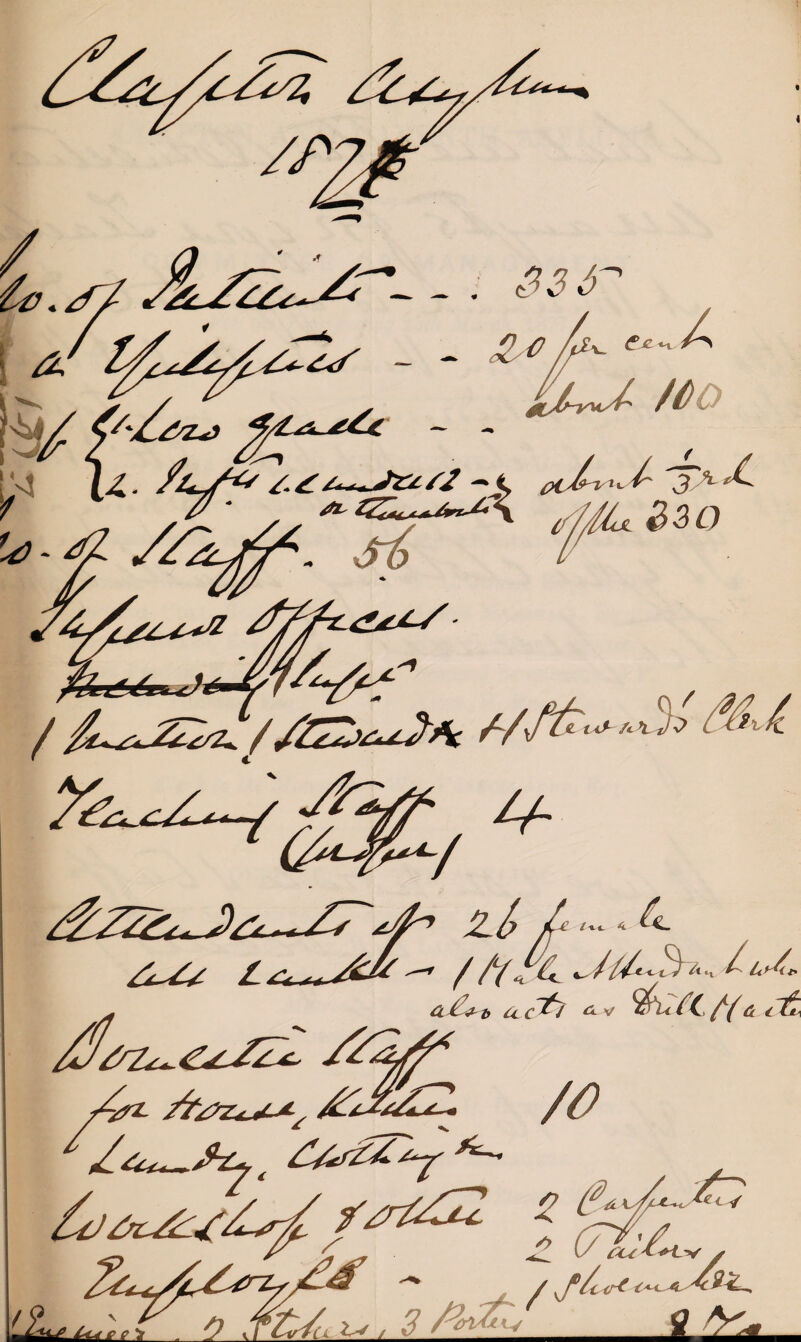 Clapton Asylum
187
No. of Patients - - . 335
Epileptics - - 20 per cent
of 1. Low grade - - about 100
2. about 1/3rd
or thereabouts of the 330
No. of Staff. 56
Superior Officers.
Including 1 Supt
1 Matron 1 Steward & 1 Steward's Clerk
Teaching Staff 4
(proper)
Attendants of 26 female
all ranks - 1 Male Attendant who
also acts as Drill Master
Domestic Staff
for House, Kitchen 10
Laundry, Clothing &c
Workshop & other 2 Carpenters
Employés - 2 Tailors
1 Shoemaker
1 Engineer, 2 Stokers, 3 Porters